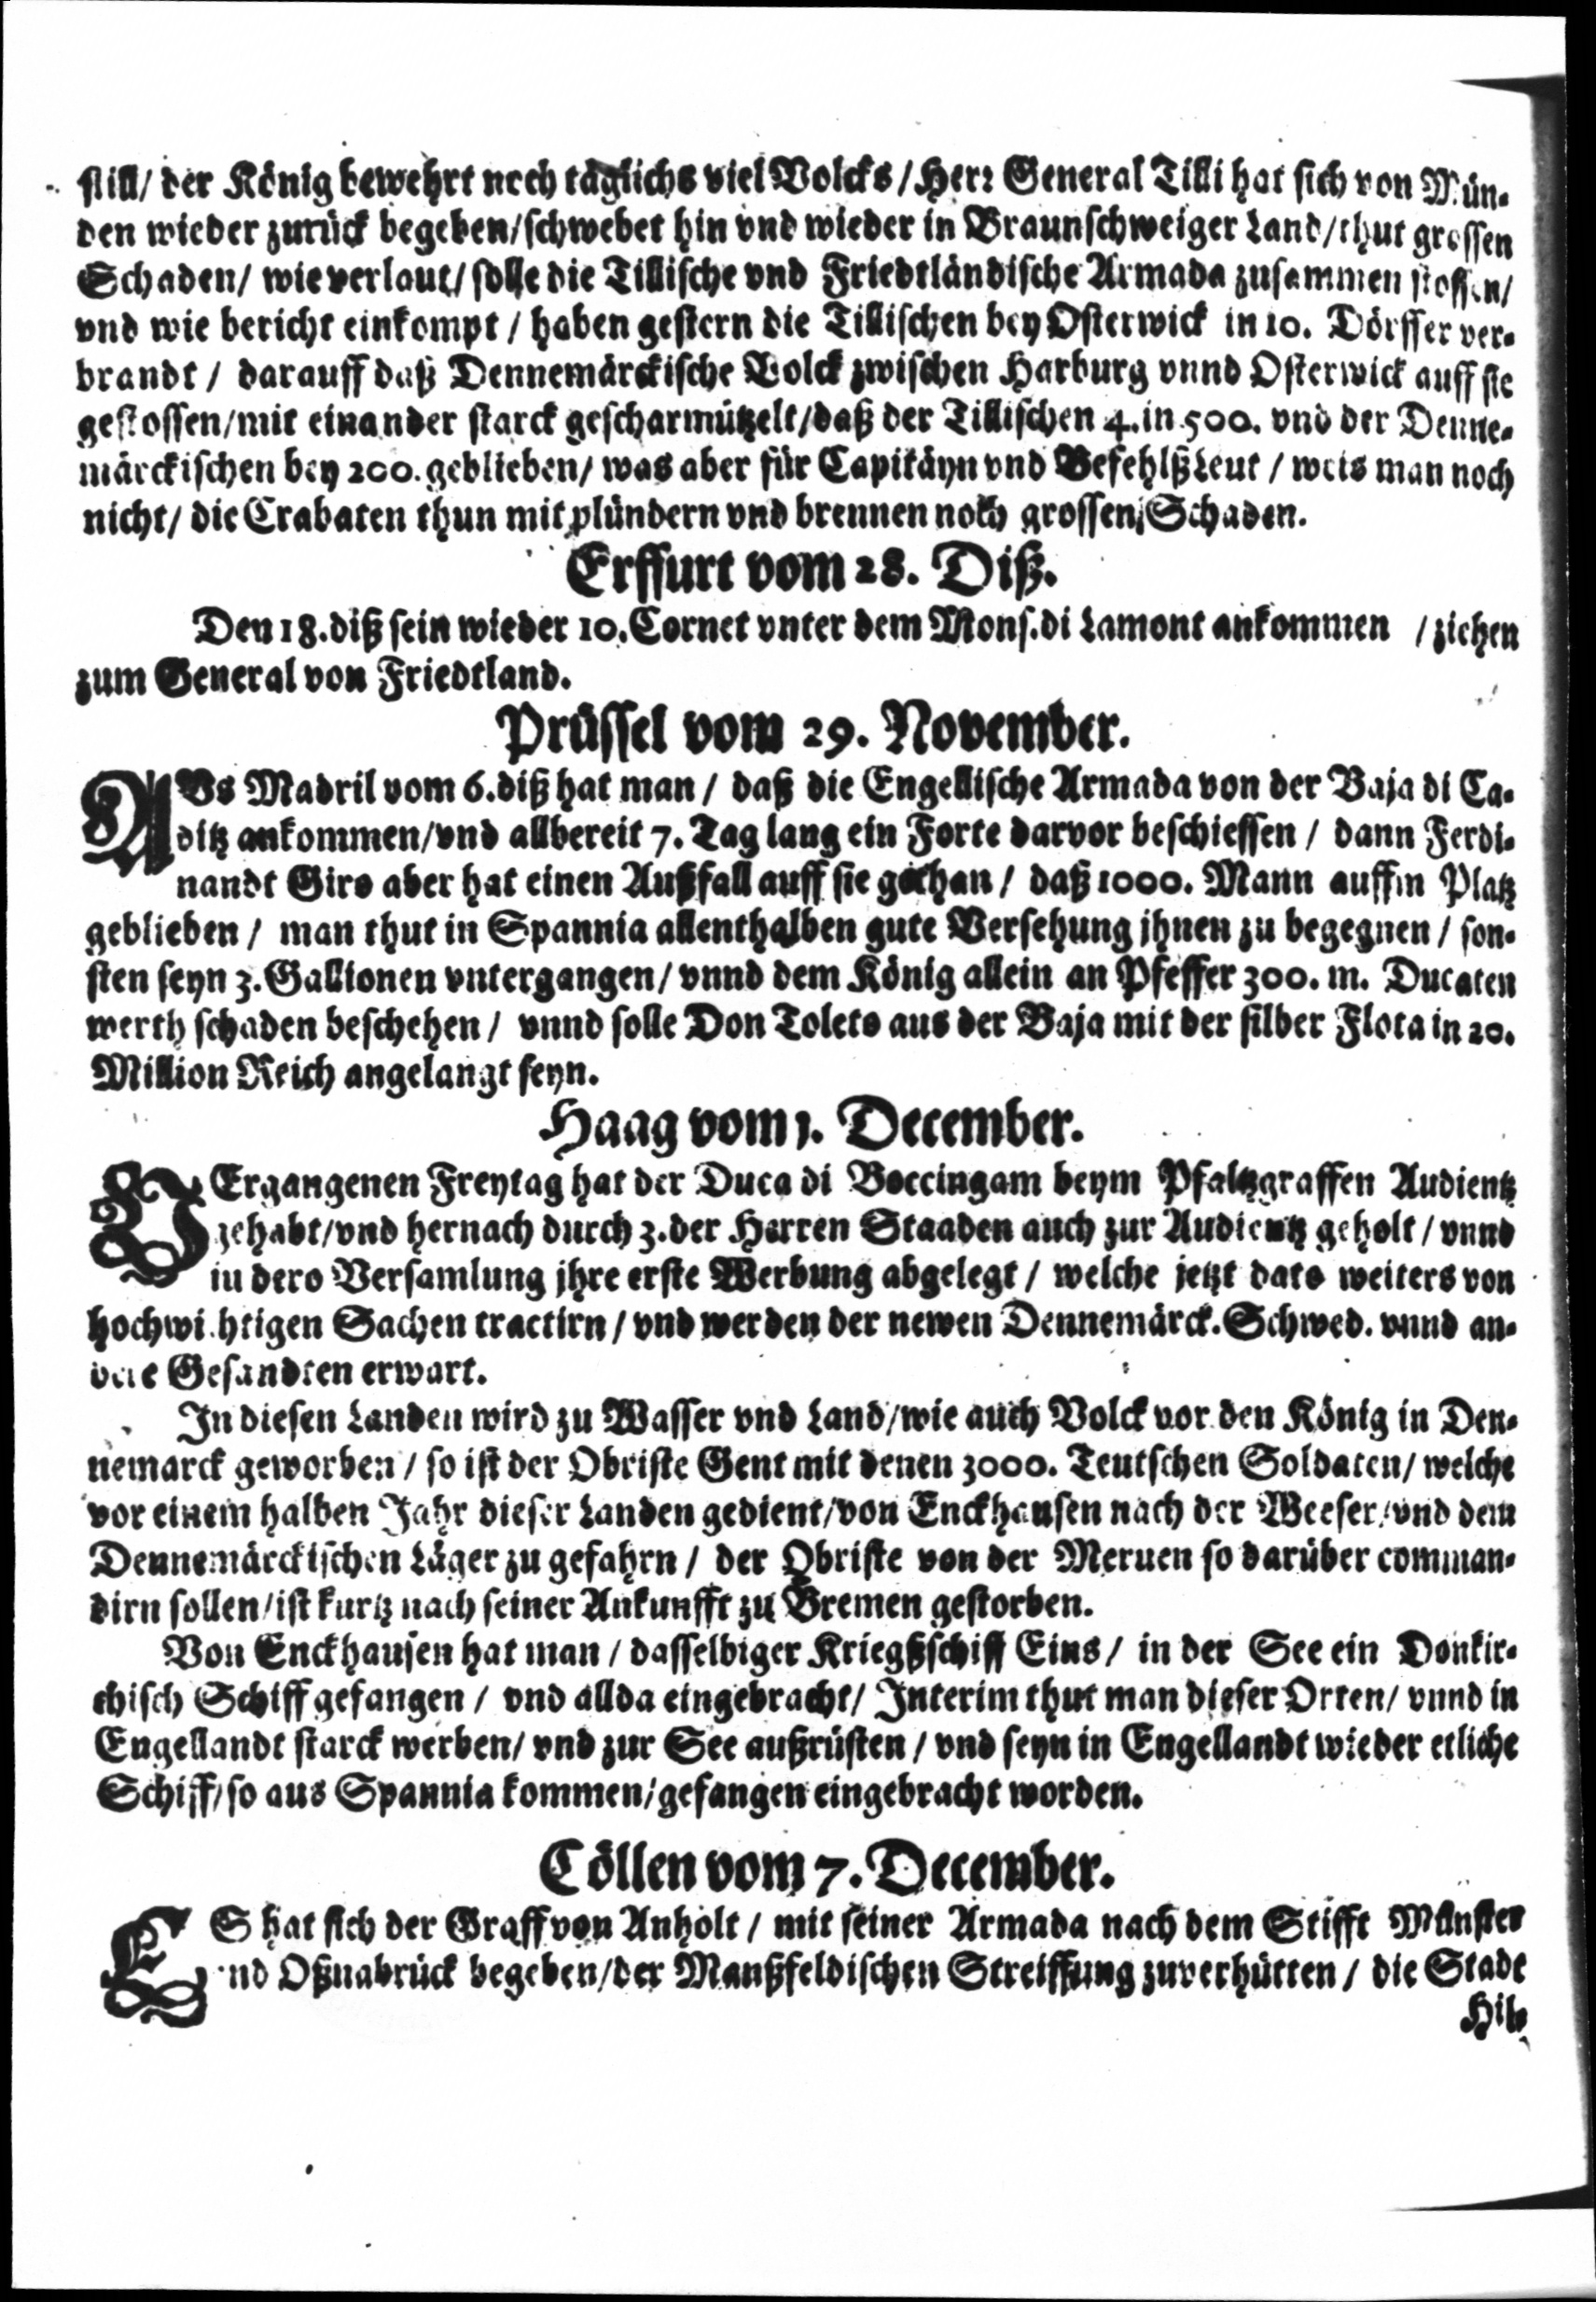 still/ der König bewehrt noch täglichs viel Volcks / Herr General Tilli hat sich von Mün-
den wieder zurück begeben/schwebet hin vnd wieder in Braunschweiger Land/thut grossen
Schaden/ wie verlaut/ solle die Tillische vnd Friedtländische Armada zusammen stossen/
vnd wie bericht einkompt / haben gestern die Tillischen bey Osterwick in 10. Dörffer ver-
brandt / darauff daß Dennemärckische Volck zwischen Harburg vnnd Osterwick auff sie
gestossen/mit einander starck gescharmützelt/daß der Tillischen 4. in 500. vnd der Denne-
märckischen bey 200. geblieben/ was aber für Capitäyn vnd BefehlßLeut / weis man noch
nicht/ die Crabaten thun mit plündern vnd brennen noch grossen Schaden.
Erffurt vom 28. Diß.
Den 18. diß sein wieder 10. Cornet vnter dem Mons. di Lamont ankommen / ziehen
zum General von Friedtland.
Prüssel vom 29. November.
AVs Madril vom 6. diß hat man / daß die Engellische Armada von der Baja di Ca-
ditz ankommen/vnd allbereit 7. Tag lang ein Forte darvor beschiessen / dann Ferdi-
nandt Giro aber hat einen Außfall auff sie gethan / daß 1000. Mann auffm Platz
geblieben / man thut in Spannia allenthalben gute Versehung jhnen zu begegnen / son-
sten seyn 3. Gallionen vntergangen/ vnnd dem König allein an Pfeffer 300. m. Ducaten
werth schaden beschehen / vnnd solle Don Toleto aus der Baja mit der silber Flota in 20.
Million Reich angelangt seyn.
Haag vom 1. December.
VErgangenen Freytag hat der Duca di Boccingam beym Pfaltzgraffen Audientz
gehabt/vnd hernach durch 3. der Herren Staaden auch zur Audientz geholt / vnnd
in dero Versamlung jhre erste Werbung abgelegt / welche jetzt dato weiters von
hochwichtigen Sachen tractirn / vnd werden der newen Dennemärck. Schwed. vnnd an-
dere Gesandten erwart.
In diesen Landen wird zu Wasser vnd Land/wie auch Volck vor den König in Den-
nemarck geworben / so ist der Obriste Gent mit denen 3000. Teutschen Soldaten/ welche
vor einem halben Jahr dieser Landen gedient/von Enckhausen nach der Weeser/vnd dem
Dennemärckischen Läger zu gefahrn / der Obriste von der Meruen so darüber comman-
dirn sollen/ist kurtz nach seiner Ankunfft zu Bremen gestorben.
Von Enckhausen hat man / dasselbiger Kriegßschiff Eins / in der See ein Donkir-
chisch Schiff gefangen / vnd allda eingebracht/ Interim thut man dieser Orten/ vnnd in
Engellandt starck werben/ vnd zur See außrüsten / vnd seyn in Engellandt wieder etliche
Schiff/so aus Spannia kommen/gefangen eingebracht worden.
Cöllen vom 7. December.
ES hat sich der Graff von Anholt / mit seiner Armada nach dem Stifft Münster
vnd Oßnabrück begeben/der Manßfeldischen Streiffung zuverhütten / die Stadt
Hil-